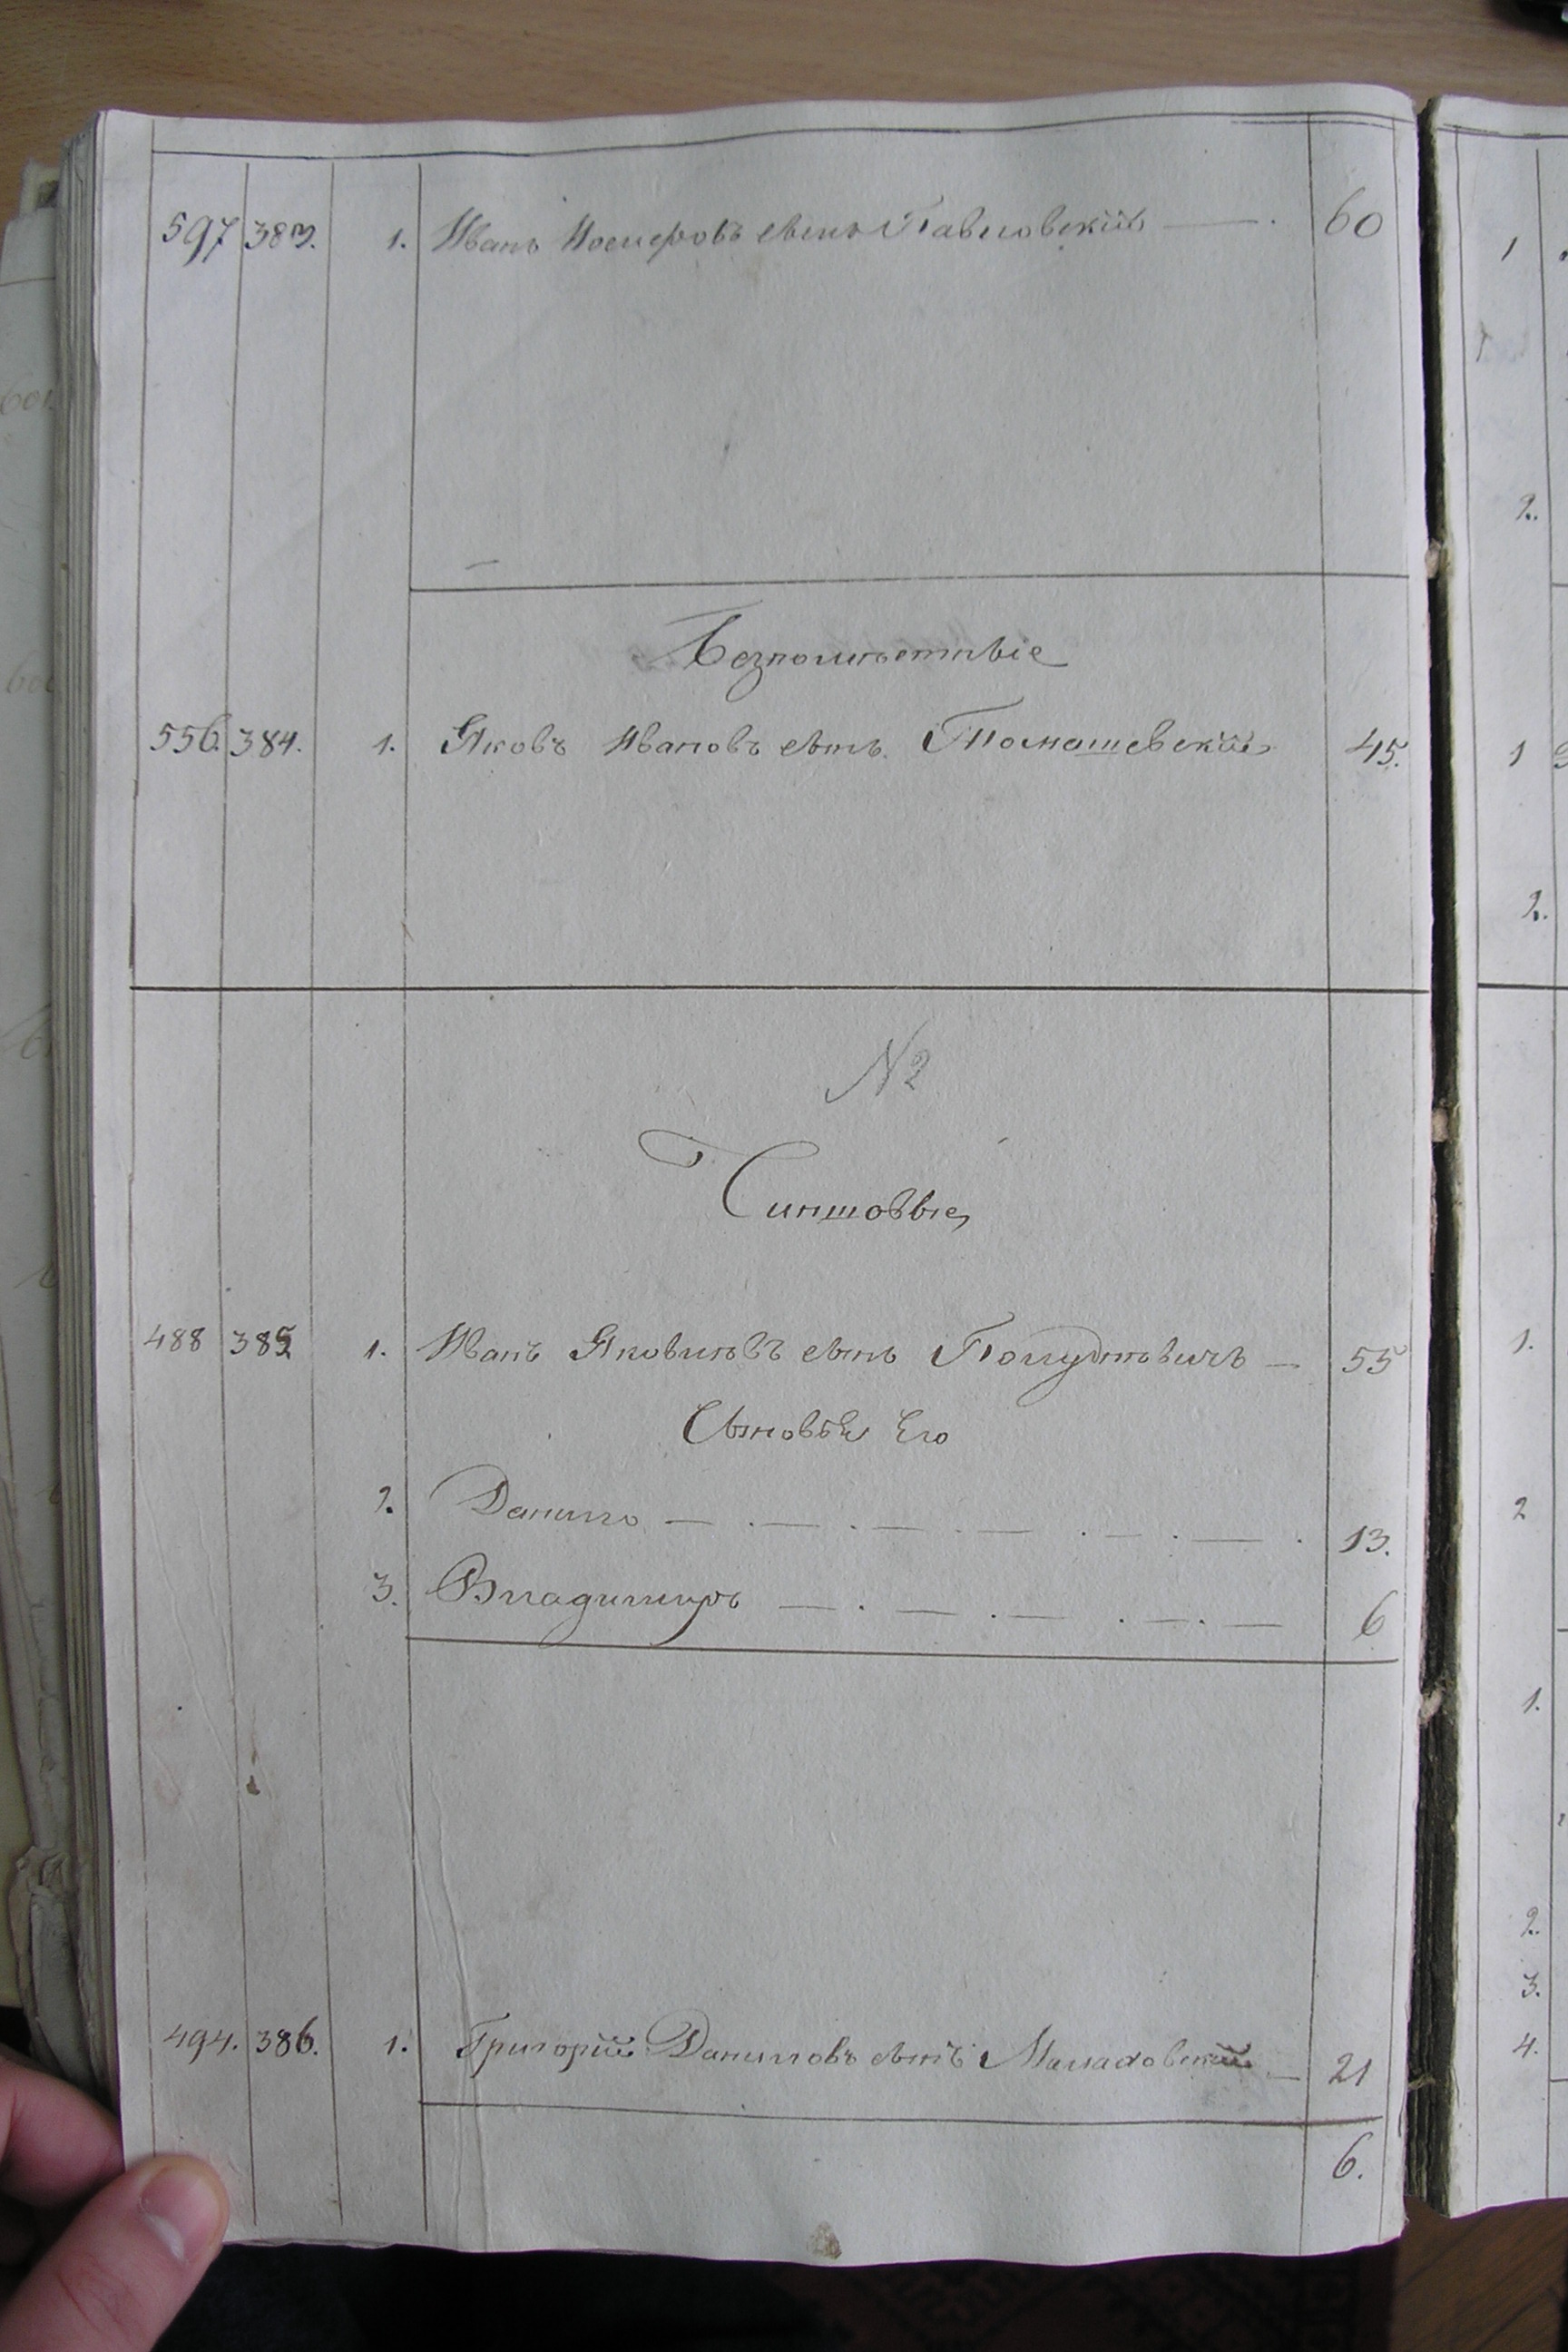 597 383. 1. Иванъ Іосиеровъ сынъ Павловскій — . 60
Безпоместные
556. 384. 1. Яковъ Ивановъ сынъ Томашевскій 45.
N 2
Чиншовые
488 385 1. Иванъ Яковлевъ сынъ Полудневичъ — 55
Сыновья Его
2. Данило — . — . — . — . — . — . 13.
3. Владимиръ — . — . — . — . — 6
494. 386. 1. Григорій Даниловъ сынъ Малаховскій — 21
6.
1
2.
1
2.
1.
2
1.
2.
3.
4.